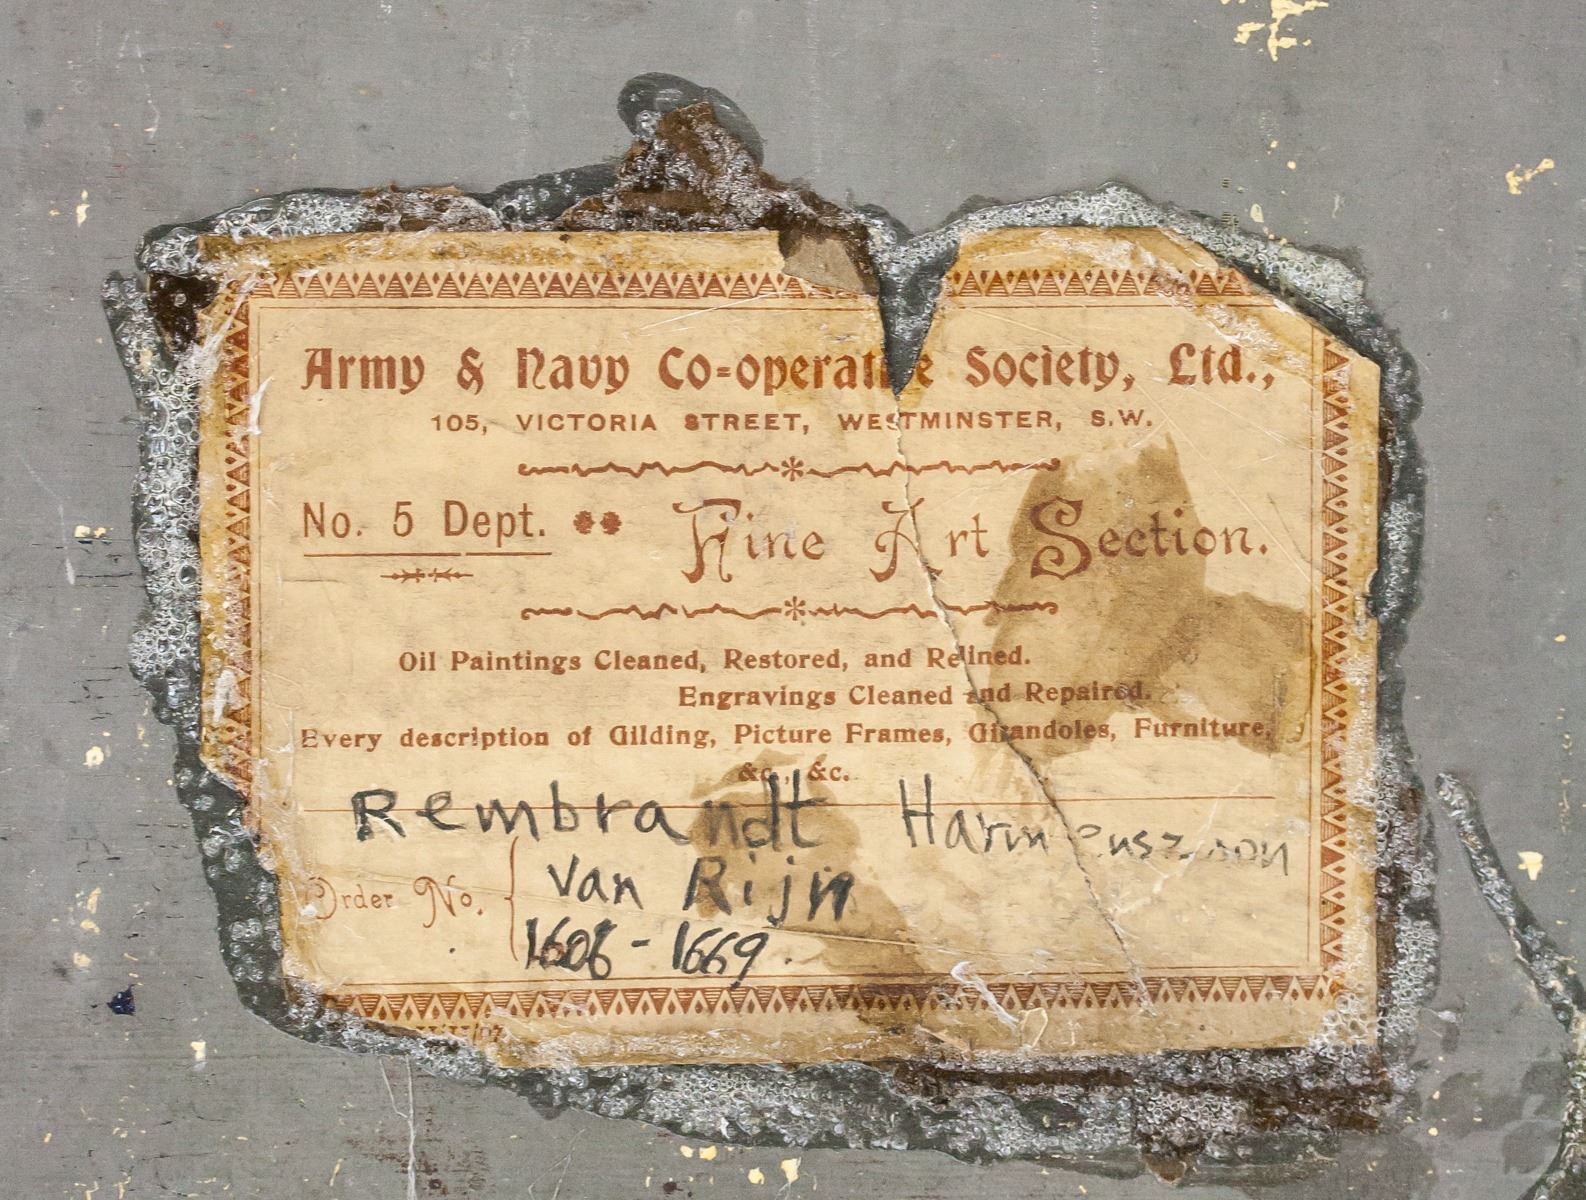 Army & Navy Co=operative Society, Ltd.,
105, VICTORIA STREET, WESTMINSTER, S.W.
No. 5 Dept. Fine Art Section.
Oil Paintings Cleaned, Restored, and Relined.
Engravings Cleaned and Repaired.
Every description of Gilding, Picture Frames, Girandoles, Furniture,
&c., &c.
Rembrandt Harmenszoon
Order No. { van Rijn
1606 - 1669.